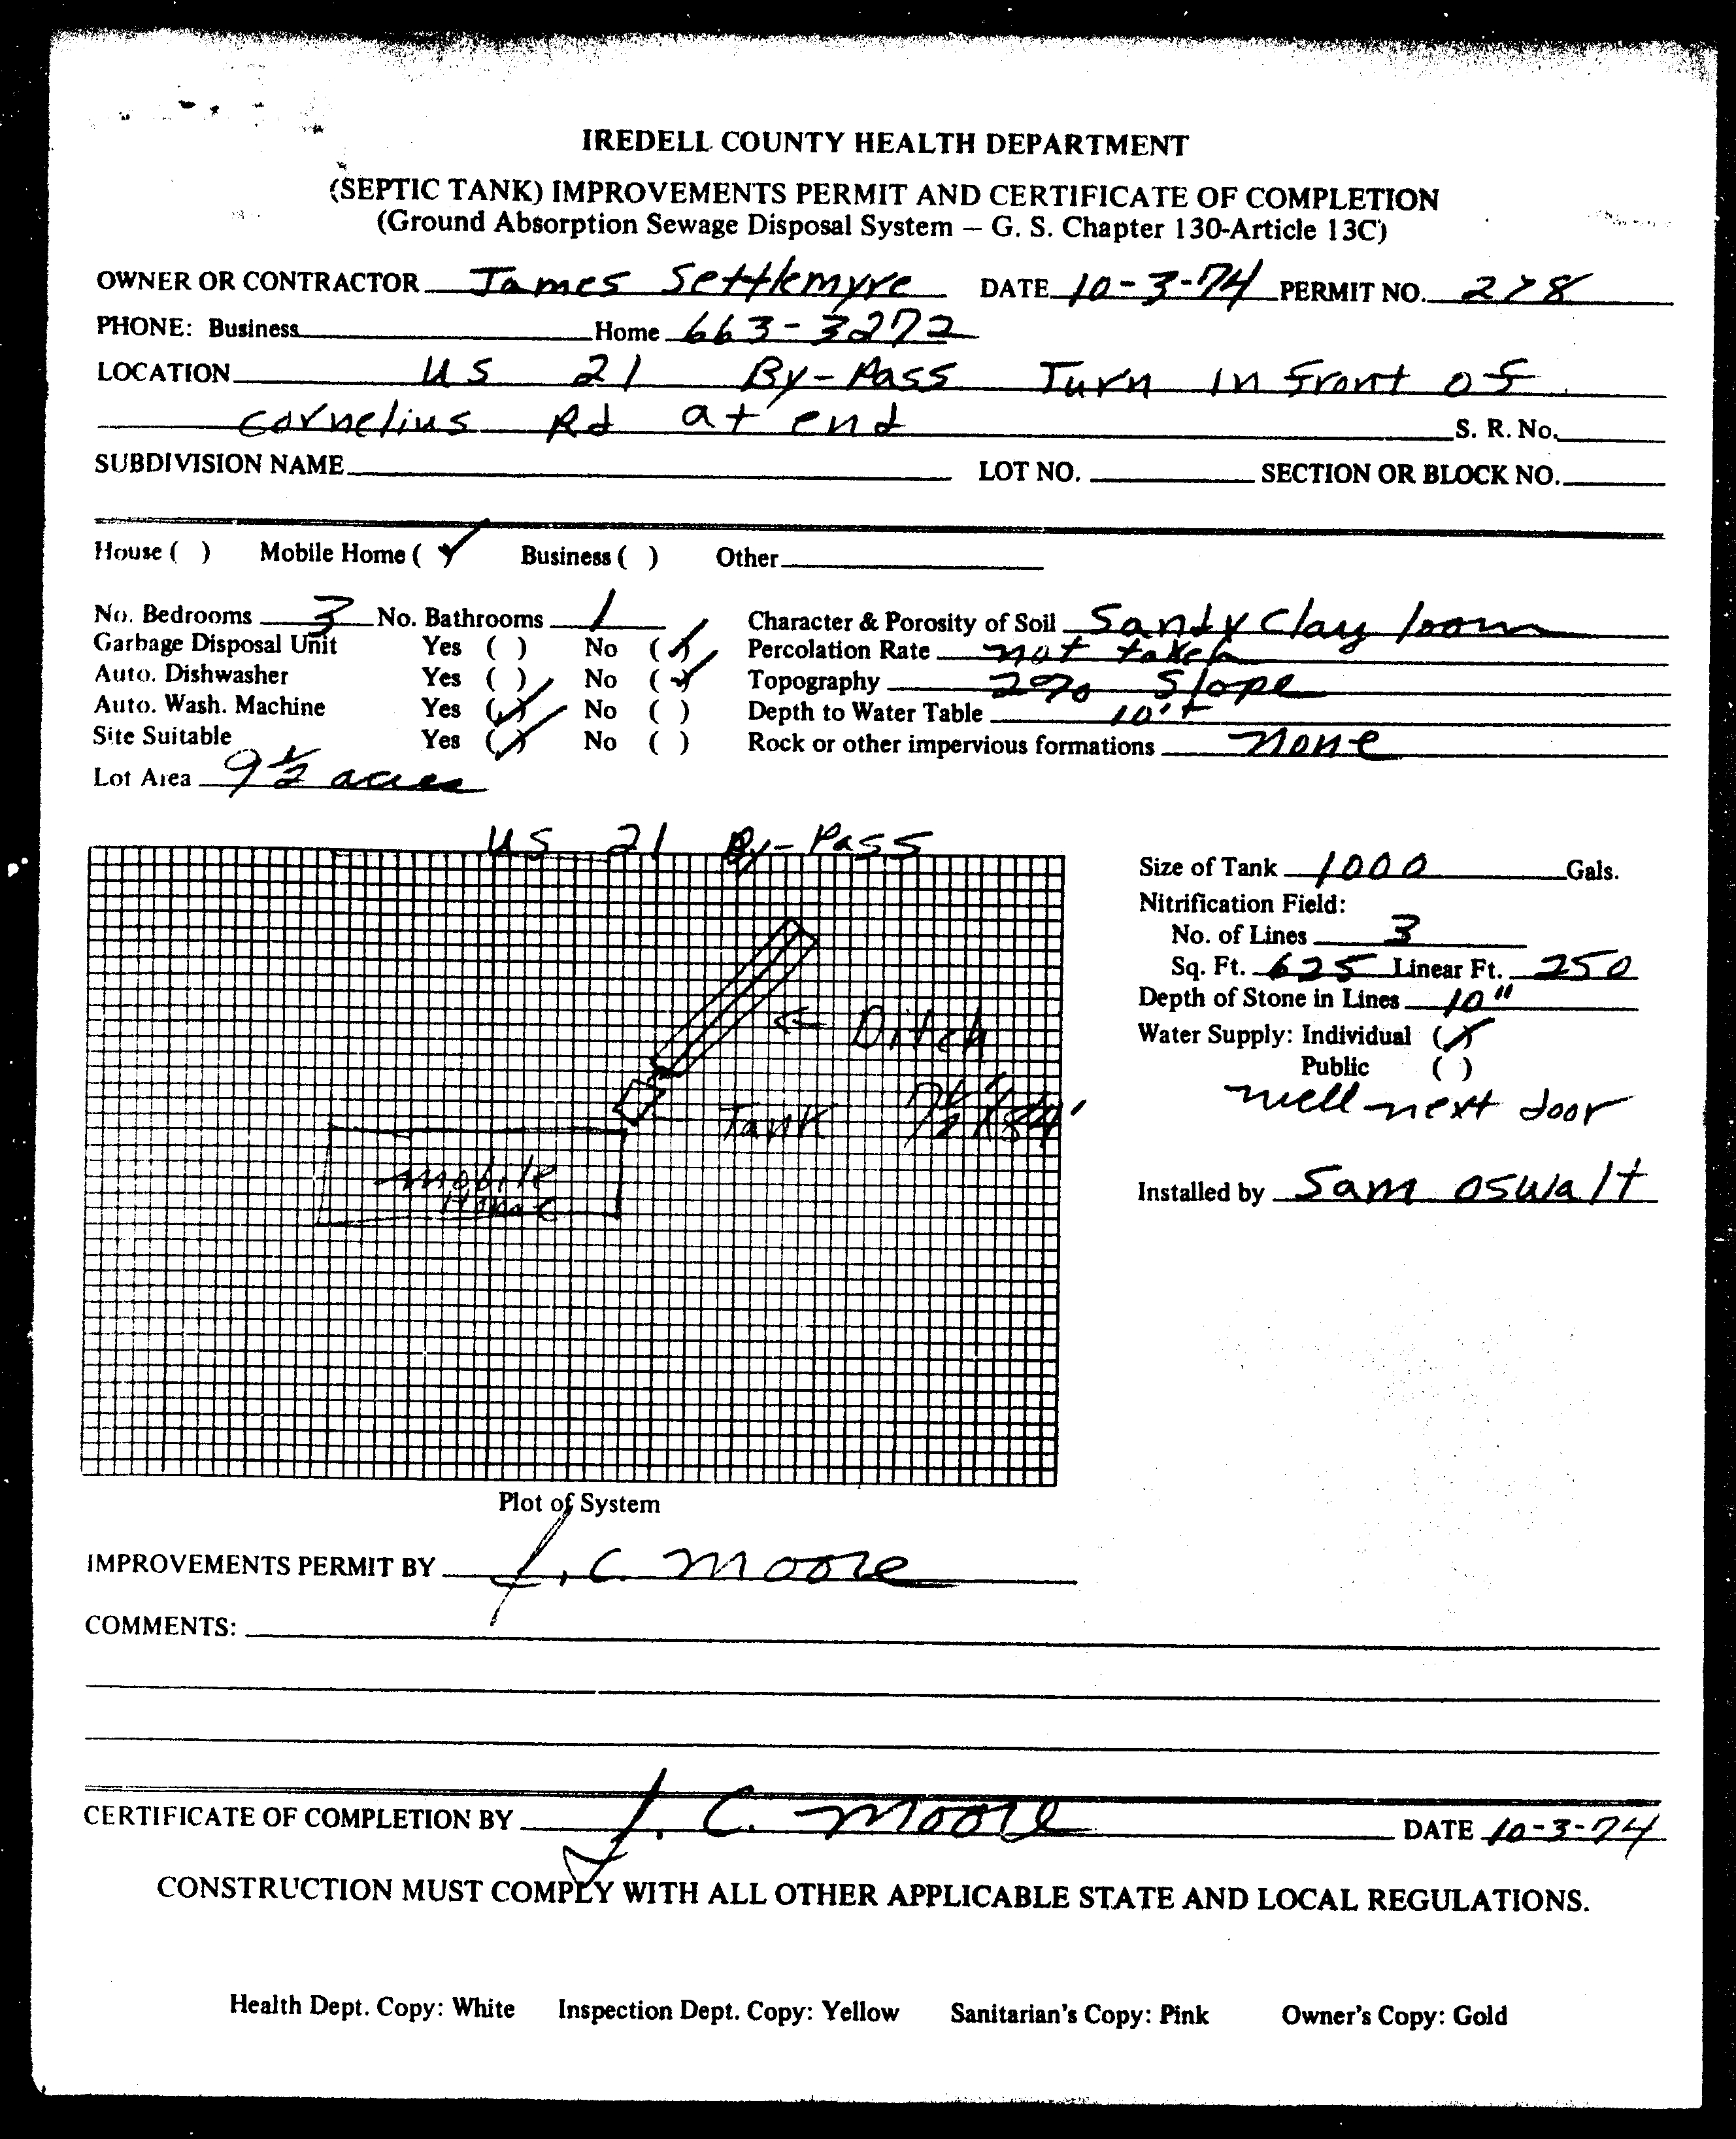 IREDELL COUNTY HEALTH DEPARTMENT
(SEPTIC TANK) IMPROVEMENTS PERMIT AND CERTIFICATE OF COMPLETION
(Ground Absorption Sewage Disposal System – G. S. Chapter 130-Article 13C)
OWNER OR CONTRACTOR James Settlemyre DATE 10-3-74 PERMIT NO. 278
PHONE: Business Home 663-3272
LOCATION US 21 By-Pass Turn in front of
Cornelius Rd at end S. R. No.
SUBDIVISION NAME LOT NO. SECTION OR BLOCK NO.
House ( ) Mobile Home (✓) Business ( ) Other
No. Bedrooms 3 No. Bathrooms 1 Character & Porosity of Soil Sandy Clay loom
Garbage Disposal Unit Yes ( ) No (✓) Percolation Rate not taken
Auto. Dishwasher Yes ( ) No (✓) Topography 2% Slope
Auto. Wash. Machine Yes (✓) No ( ) Depth to Water Table 10'+
Site Suitable Yes (✓) No ( ) Rock or other impervious formations none
Lot Area 9½ acres
US 21 By-Pass
Size of Tank 1000 Gals.
Nitrification Field:
No. of Lines 3
Sq. Ft. 625 Linear Ft. 250
Depth of Stone in Lines 10"
Water Supply: Individual (✓)
Public ( )
well next door
Installed by Sam Oswalt
Ditch
Tank
mobile
Home
Plot of System
IMPROVEMENTS PERMIT BY J. C. Moore
COMMENTS:
CERTIFICATE OF COMPLETION BY J. C. Moore DATE 10-3-74
CONSTRUCTION MUST COMPLY WITH ALL OTHER APPLICABLE STATE AND LOCAL REGULATIONS.
Health Dept. Copy: White Inspection Dept. Copy: Yellow Sanitarian's Copy: Pink Owner's Copy: Gold